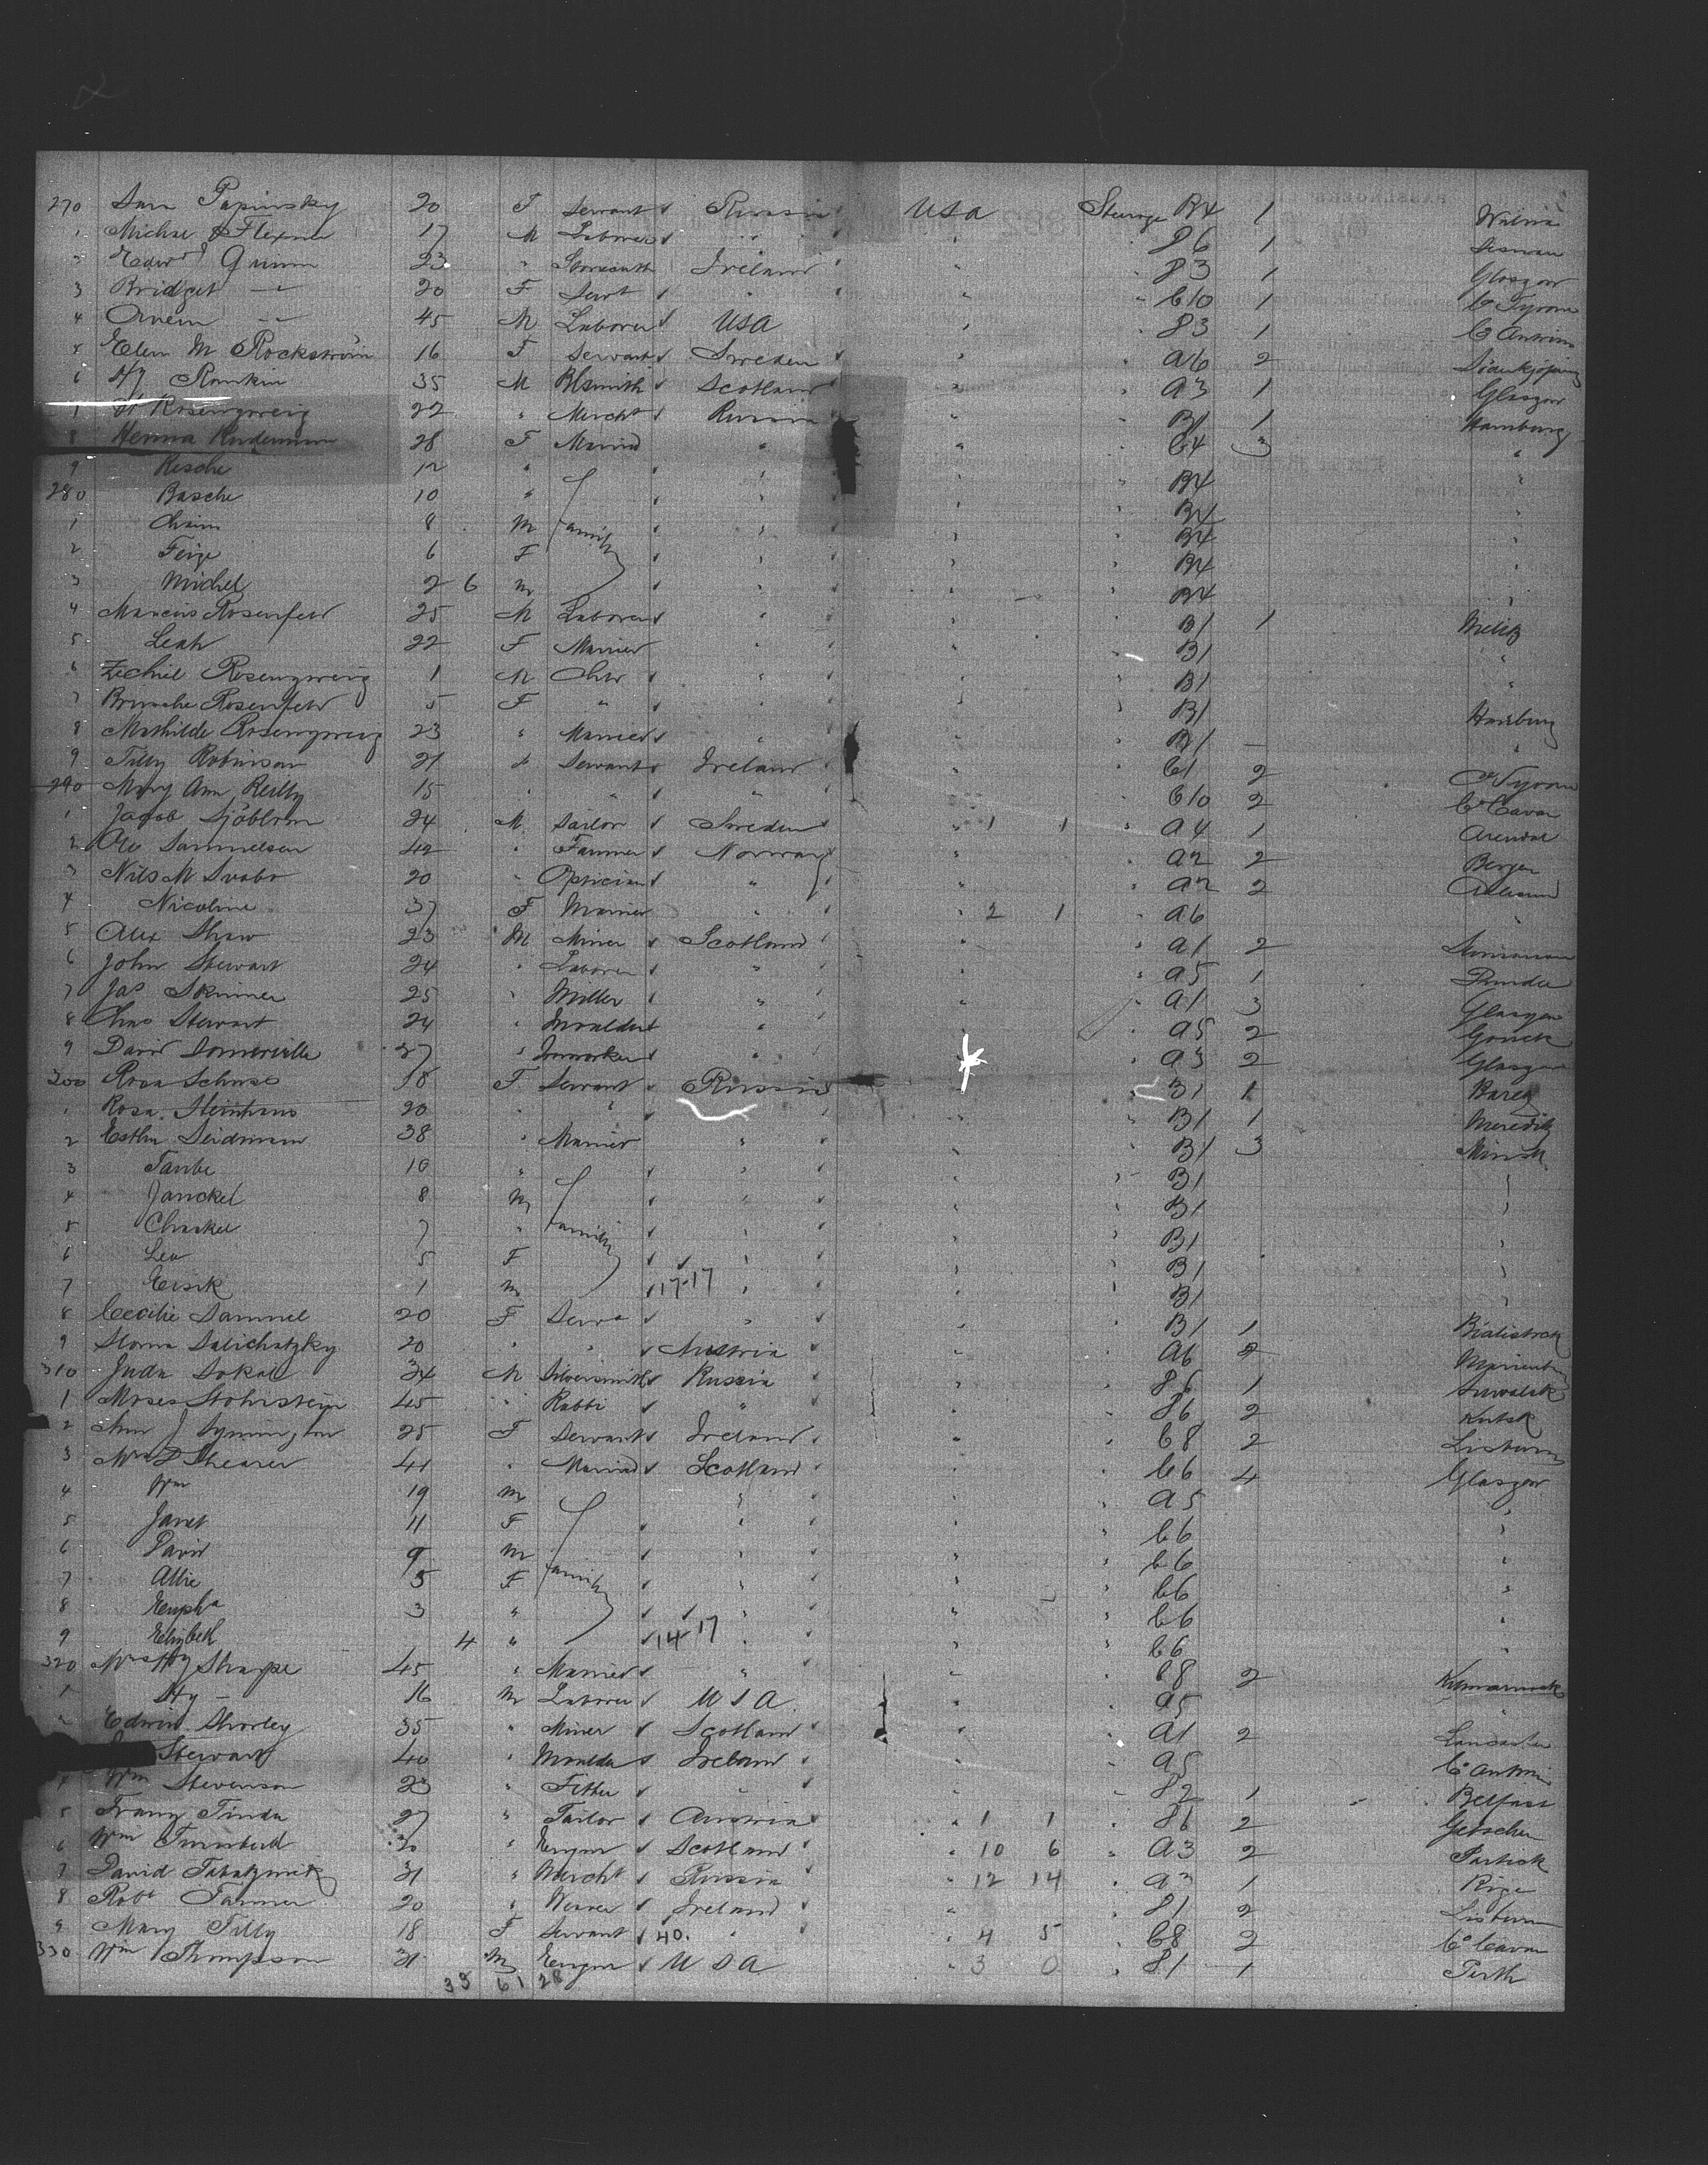 270 Sara Papinsky 20 F Servant Russia USA Steerage B4 1 Wilna
1 Michse Flexner 17 M Laborer " " 86 1
2 Edwd Quinn 23 " Ireland " 83 1 Glasgow
3 Bridget — 20 F Servt " " C10 1 Co Tyrone
4 Owen — 45 M Laborer USA " 83 1 Co Antrim
5 Elen M Rockström 16 F Servant Sweden " A6 2
6 Hy Rankin 35 M Blsmith Scotland " A3 1 Glasgow
7 Rosengweig 22 " Mercht Russia " B1 1 Hamburg
8 Herma Rudemann 28 F Married " " C4 3 "
9 Resche 12 " " " B4 "
280 Basche 10 " Family " " B4 "
1 Chaim 8 M " " B4 "
2 Feige 6 F " " B4 "
3 Michel 2 6 M " " B4 "
4 Marcus Rosenfeld 25 M Laborer " " B1 1 Melitz
5 Leah 22 F Married " " B1 "
6 Zechiel Rosengweig 1 M Chd " " B1 "
7 Brusche Rosenfeld 5 F " " " B1 Hamburg
8 Mathilde Rosengweig 23 " Married " " B1 — "
9 Tilly Robinson 21 " Servant Ireland " C1 2 Co Tyrone
290 Mary Ann Reilly 15 " " " " C10 2 Co Cavan
1 Jacob Sjöblom 24 M Sailor Sweden " 1 1 A4 1 Arendal
2 Ole Samuelsen 42 " Farmer Norway " A2 2 Bergen
3 Nils M Svabo 20 " Optician " " A2 2 Aalesund
4 Nicoline 37 F Married " " 2 1 A6 "
5 Alex Shaw 23 M Miner Scotland " A1 2
6 John Stewart 24 " Laborer " " A5 1 Dundee
7 Jas Skinner 25 " Miller " " A1 3 Glasgow
8 Chas Stewart 24 " Moulder " " A5 2
9 David Somerville 27 " Ironworker " " A3 2 Glasgow
300 Rosa Schuse 18 F Servant Russia B1 1
1 Rosa Steinhaus 20 " " " " B1 1
2 Esther Seidmann 38 " Married " " B1 3 Minsk
3 Taube 10 " " " B1 "
4 Janckel 8 M " " B1 "
5 Chaskel 7 " Family " " B1 "
6 Lea 5 F " " B1 "
7 Eisik 1 M 17-17 " " B1 "
8 Cecilie Sammel 20 F Servt " " B1 1 Bialistock
9 Slatichatzky 20 " " Austria " A6 2
310 Juda Sokal 34 M Silversmith Russia " 86 1
1 Moses Stohrstein 45 " Rabbi " " 86 2
2 Ann J Symington 25 F Servant Ireland " C8 2 Lisburn
3 Mrs D Shearer 41 " Married Scotland " C6 4 Glasgow
4 Wm 19 M " " A5 "
5 Janet 11 F " " C6 "
6 David 9 M " " C6 "
7 Allie 5 F Family " " C6 "
8 Eupha 3 " " " C6 "
9 Elizbeth 4 " 14 17 " " C6 "
320 Mrs Hy Sharpe 45 " Married " " C8 2 Kilmarnock
1 Hy — 16 M Laborer USA " A5 "
2 Edwin Shorley 35 " Miner Scotland " A1 2 Lancaster
Stewart 40 " Moulder Ireland " A5 Co Antrim
4 Wm Stevenson 23 " Fitter " " 82 1 Belfast
5 Franz Tinda 27 " Tailor Austria " 1 1 86 2
6 Wm Turnbull 30 " Engnr Scotland " 10 6 A3 2 Partick
7 David Tabatznick 31 " Mercht Russia " 12 14 A3 1 Riga
8 Robt Tanner 20 " Weaver Ireland " 81 2 Lisburn
9 Mary Tilly 18 F Servant 40. " " 4 5 C8 2 Co Cavan
330 Wm Thompson 31 M Engnr USA " 3 0 81 1 Perth
33 61 28